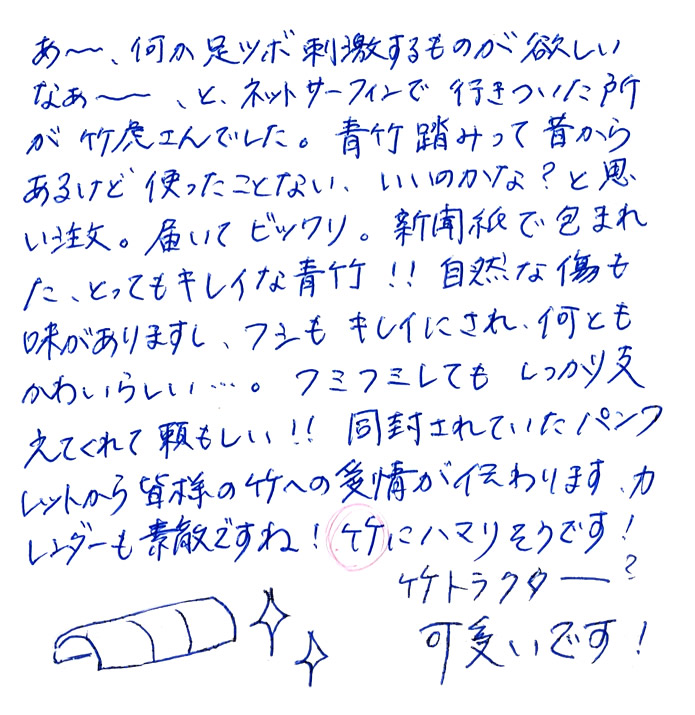 あ〜〜、何か足ツボ刺激するものが欲しい
なぁ〜〜、と、ネットサーフィンで行きついた所
が竹虎さんでした。青竹踏みって昔から
あるけど使ったことない、いいのかな?と思
い注文。届いてビックリ。新聞紙で包まれ
た、とってもキレイな青竹!!自然な傷も
味がありますし、フシもキレイにされ、何とも
かわいらしい…。フミフミしてもしっかり支
えてくれて頼もしい!!同封されていたパンフ
レットから皆様の竹への愛情が伝わります、カ
レンダーも素敵ですね!竹にハマりそうです!
竹トラクター?
可愛いです!